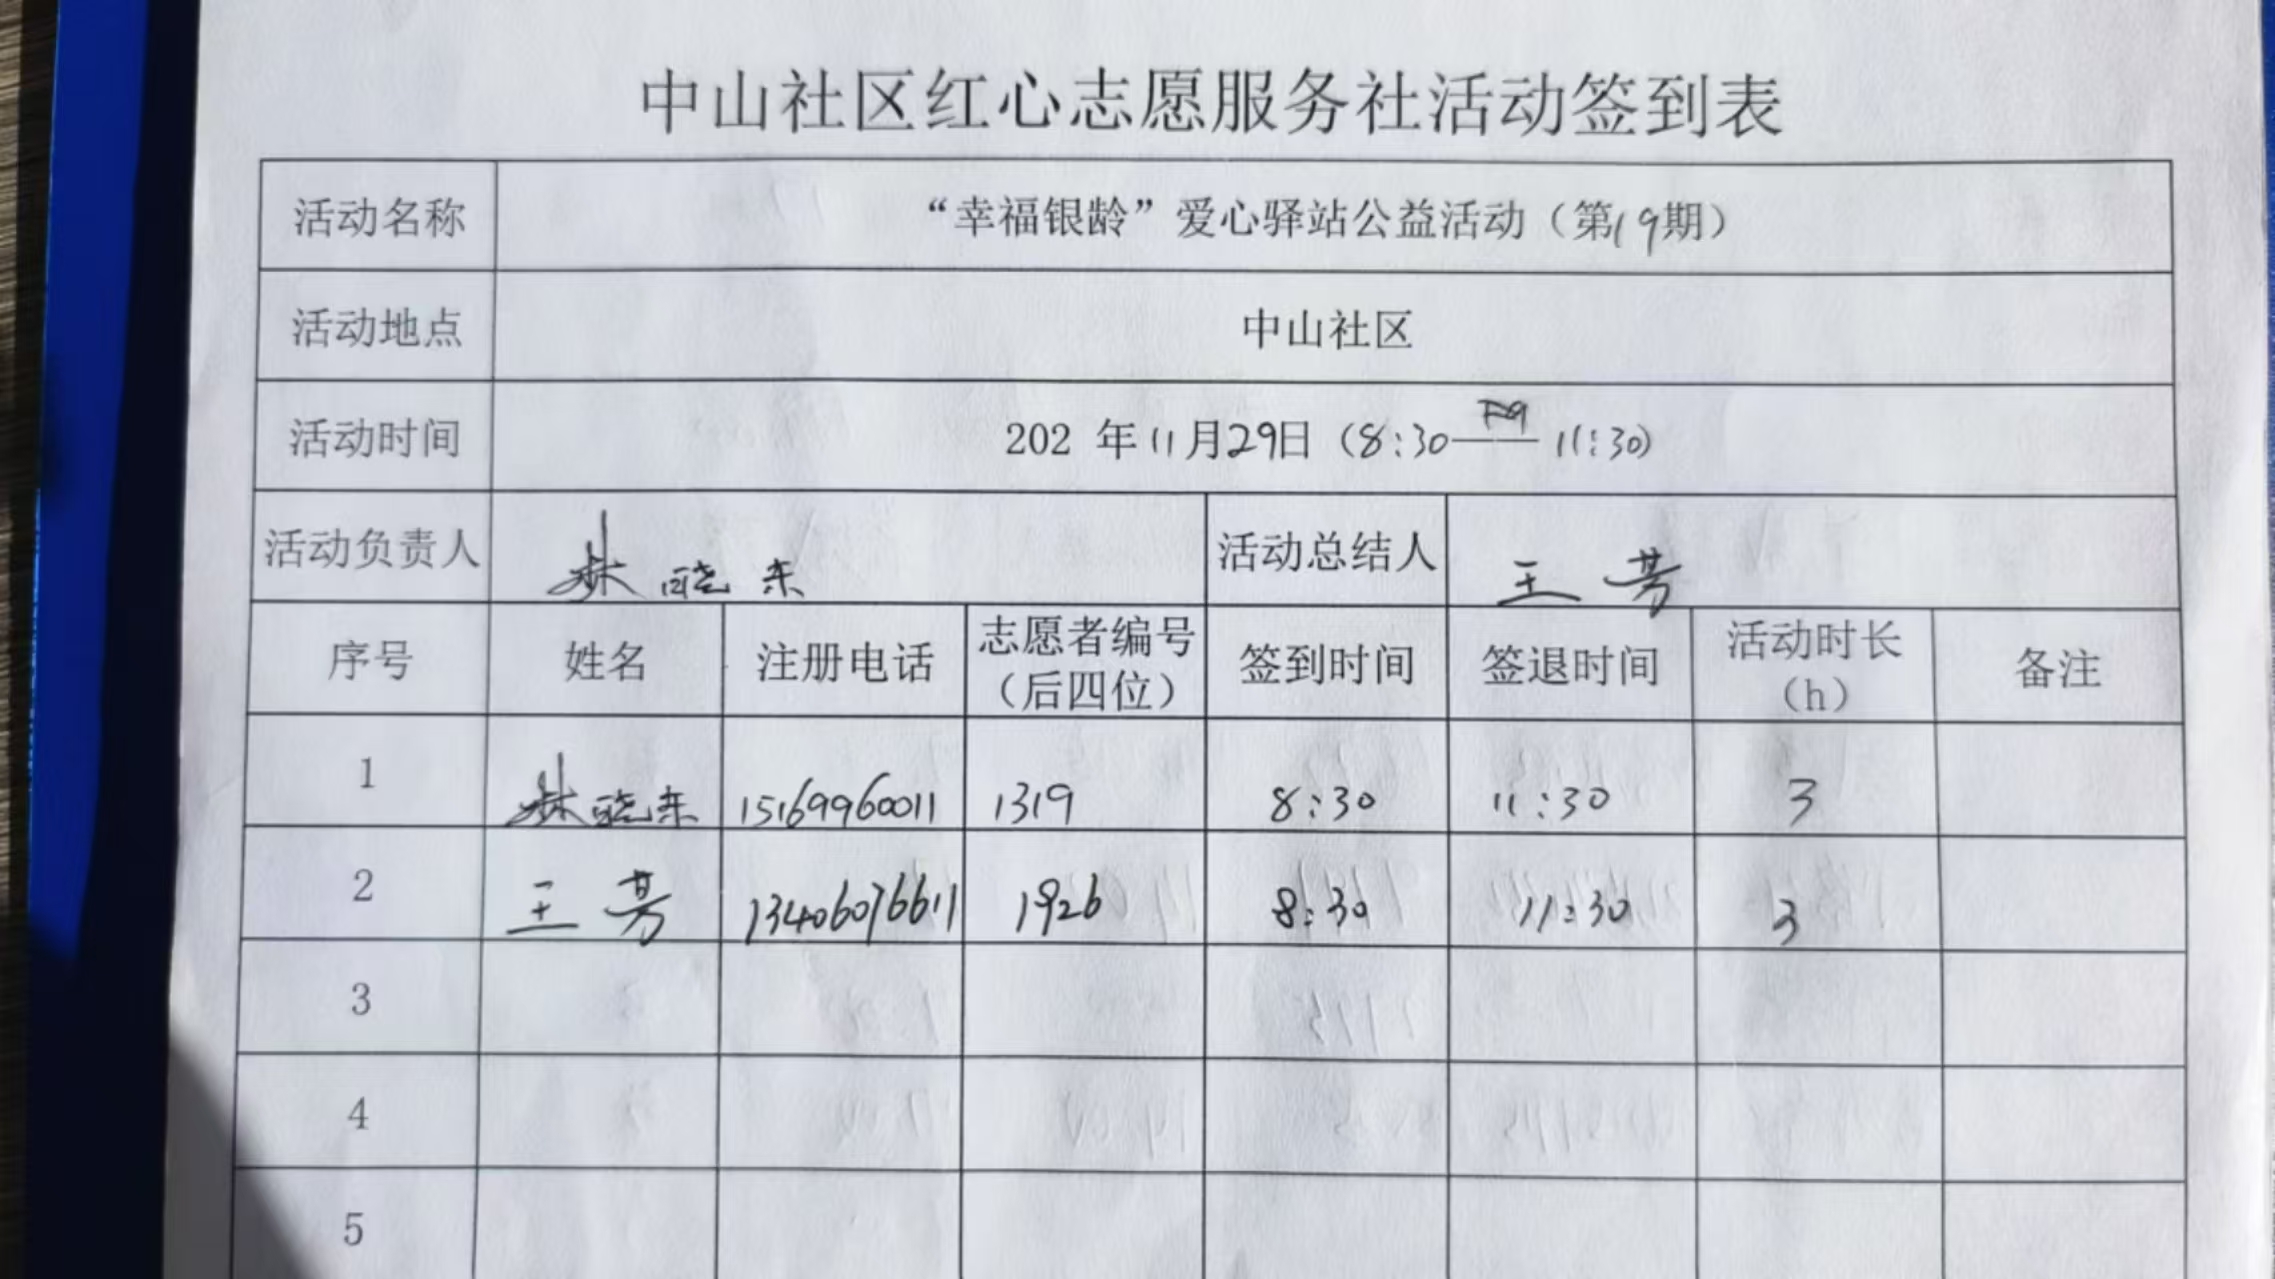 中山社区红心志愿服务社活动签到表
活动名称 “幸福银龄”爱心驿站公益活动（第19期）
活动地点 中山社区
活动时间 202 年11月29日（8:30—— 11:30）
活动负责人 林晓东 活动总结人 王芳
序号 姓名 注册电话 志愿者编号（后四位） 签到时间 签退时间 活动时长（h） 备注
1 林晓东 15169960011 1319 8:30 11:30 3
2 王芳 13406076611 1926 8:30 11:30 3
3
4
5